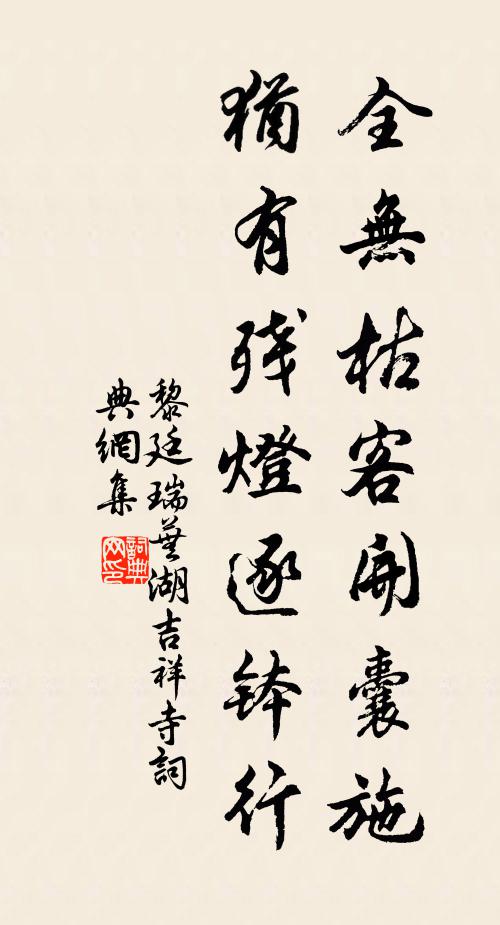 全無枯客開囊施
猶有殘燈逐鉢行
黎廷瑞蕪湖吉祥寺詞
典網集
詞典網印